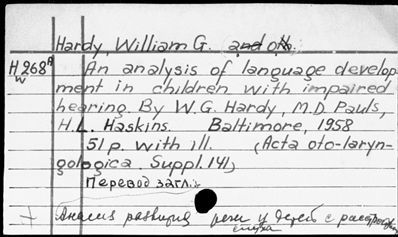 Hardy William G. and oth.
H 268 A An analysis of language develop-
w ment in children with impaired
hearing. By W.G. Hardy, M.D. Pauls,
H.L. Haskins. Baltimore, 1958
51 p. with ill. (Acta oto-laryn-
gologica. Suppl. 141)
Перевод загл.:
Анализ развития речи у детей с расстройством
слуха